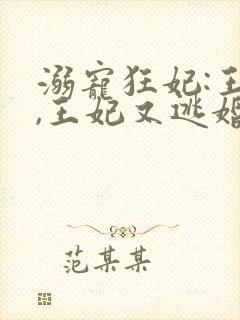 溺寵狂妃:王
,王妃又逃婚
范某某